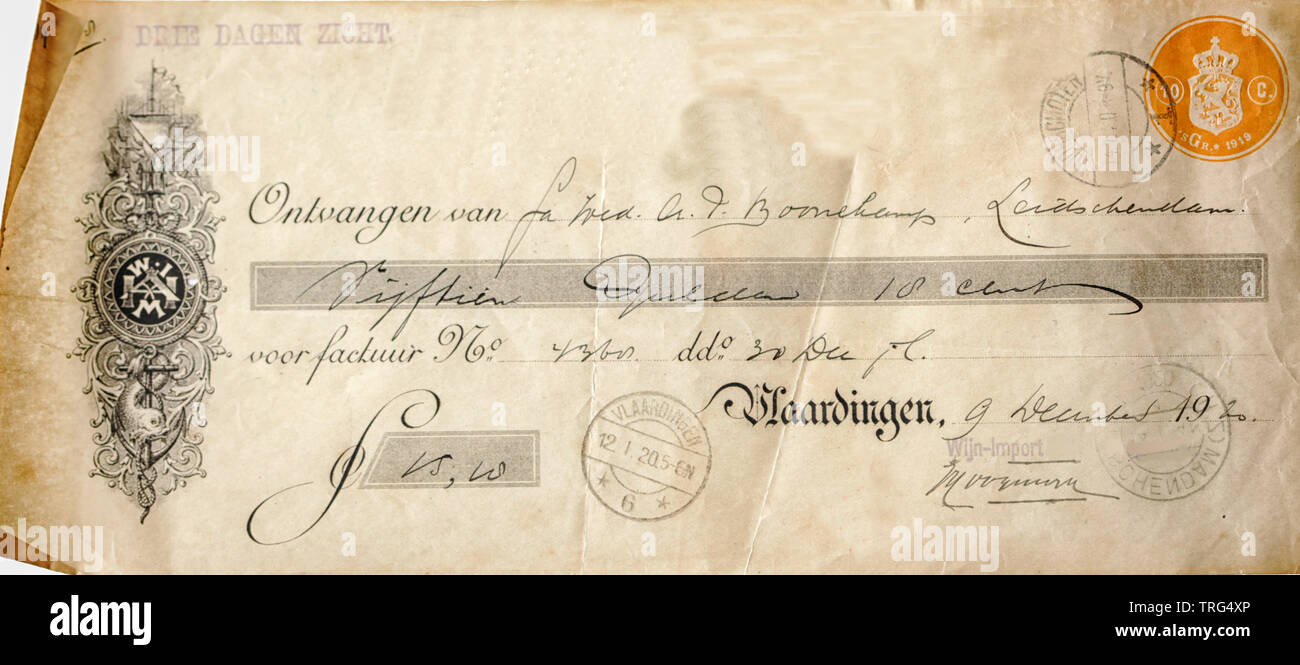 DRIE DAGEN ZICHT.
10 C.
'sGR.* 1919
Ontvangen van fa Wed. A. P. Boonekamp, Leidschendam.
Vijftien Gulden 18 cent
voor factuur No. ddo. 30 Dec jl.
Vlaardingen, 9 December 1920.
Wijn-Import
f 15,18
VLAARDINGEN
12.1.20.5-6N
* 6 *
W.I.
M
alamy
Image ID: TRG4XP
www.alamy.com